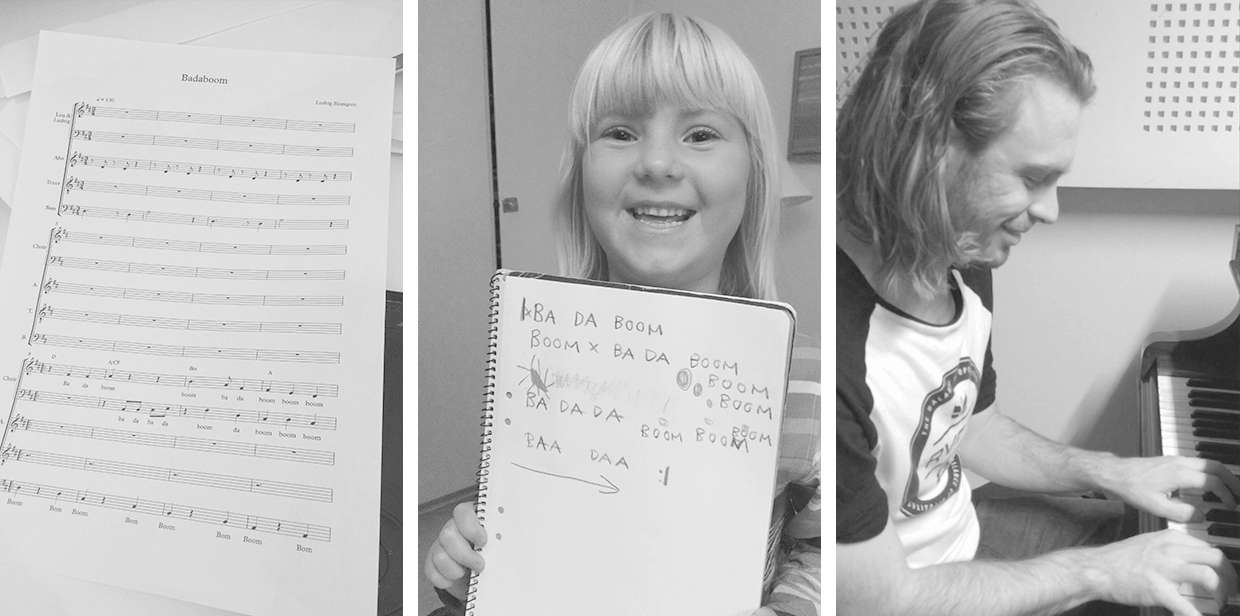 Badaboom
♩ = 130
Ludvig Blomgren
Lou &
Ludvig
Alto
Tenor
Bass
Choir
A.
T.
B.
D A/C# Bm A
Choir
Ba da boom boom ba da boom boom boom
ba da ba da boom da boom boom boom
Boom Bom Boom Bom Boom Bom Boom Bom
BA DA BOOM
BOOM x BA DA BOOM
BOOM
BOOM
BA DA DA
BOOM BOOM BOOM
BAA DAA :|